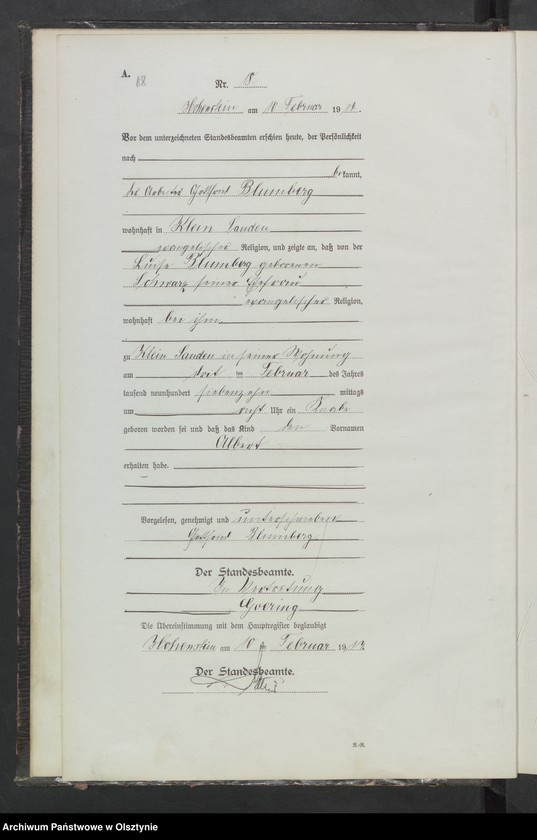 A.
Nr. 8
Hohenstein am 10 Februar 19
Vor dem unterzeichneten Standesbeamten erschien heute, der Persönlichkeit
nach
be kannt,
Gottfried Blumberg
wohnhaft in Klein
evangelischer Religion, und zeigte an, daß von der
Luise Blumberg geborenen
Schwarz seiner Ehefrau
evangelischer Religion,
wohnhaft bei ihm
zu Klein in seiner Wohnung
am Februar des Jahres
tausend neunhundert siebenzehn mittags
um acht Uhr ein Knabe
geboren worden sei und daß das Kind den Vornamen
Albert
erhalten habe.
Vorgelesen, genehmigt und unterschrieben
Gottfried Blumberg
Der Standesbeamte.
In Vertretung
Goering
Die Übereinstimmung mit dem Hauptregister beglaubigt
Hohenstein am 10 Februar 19
Der Standesbeamte.
Archiwum Państwowe w Olsztynie